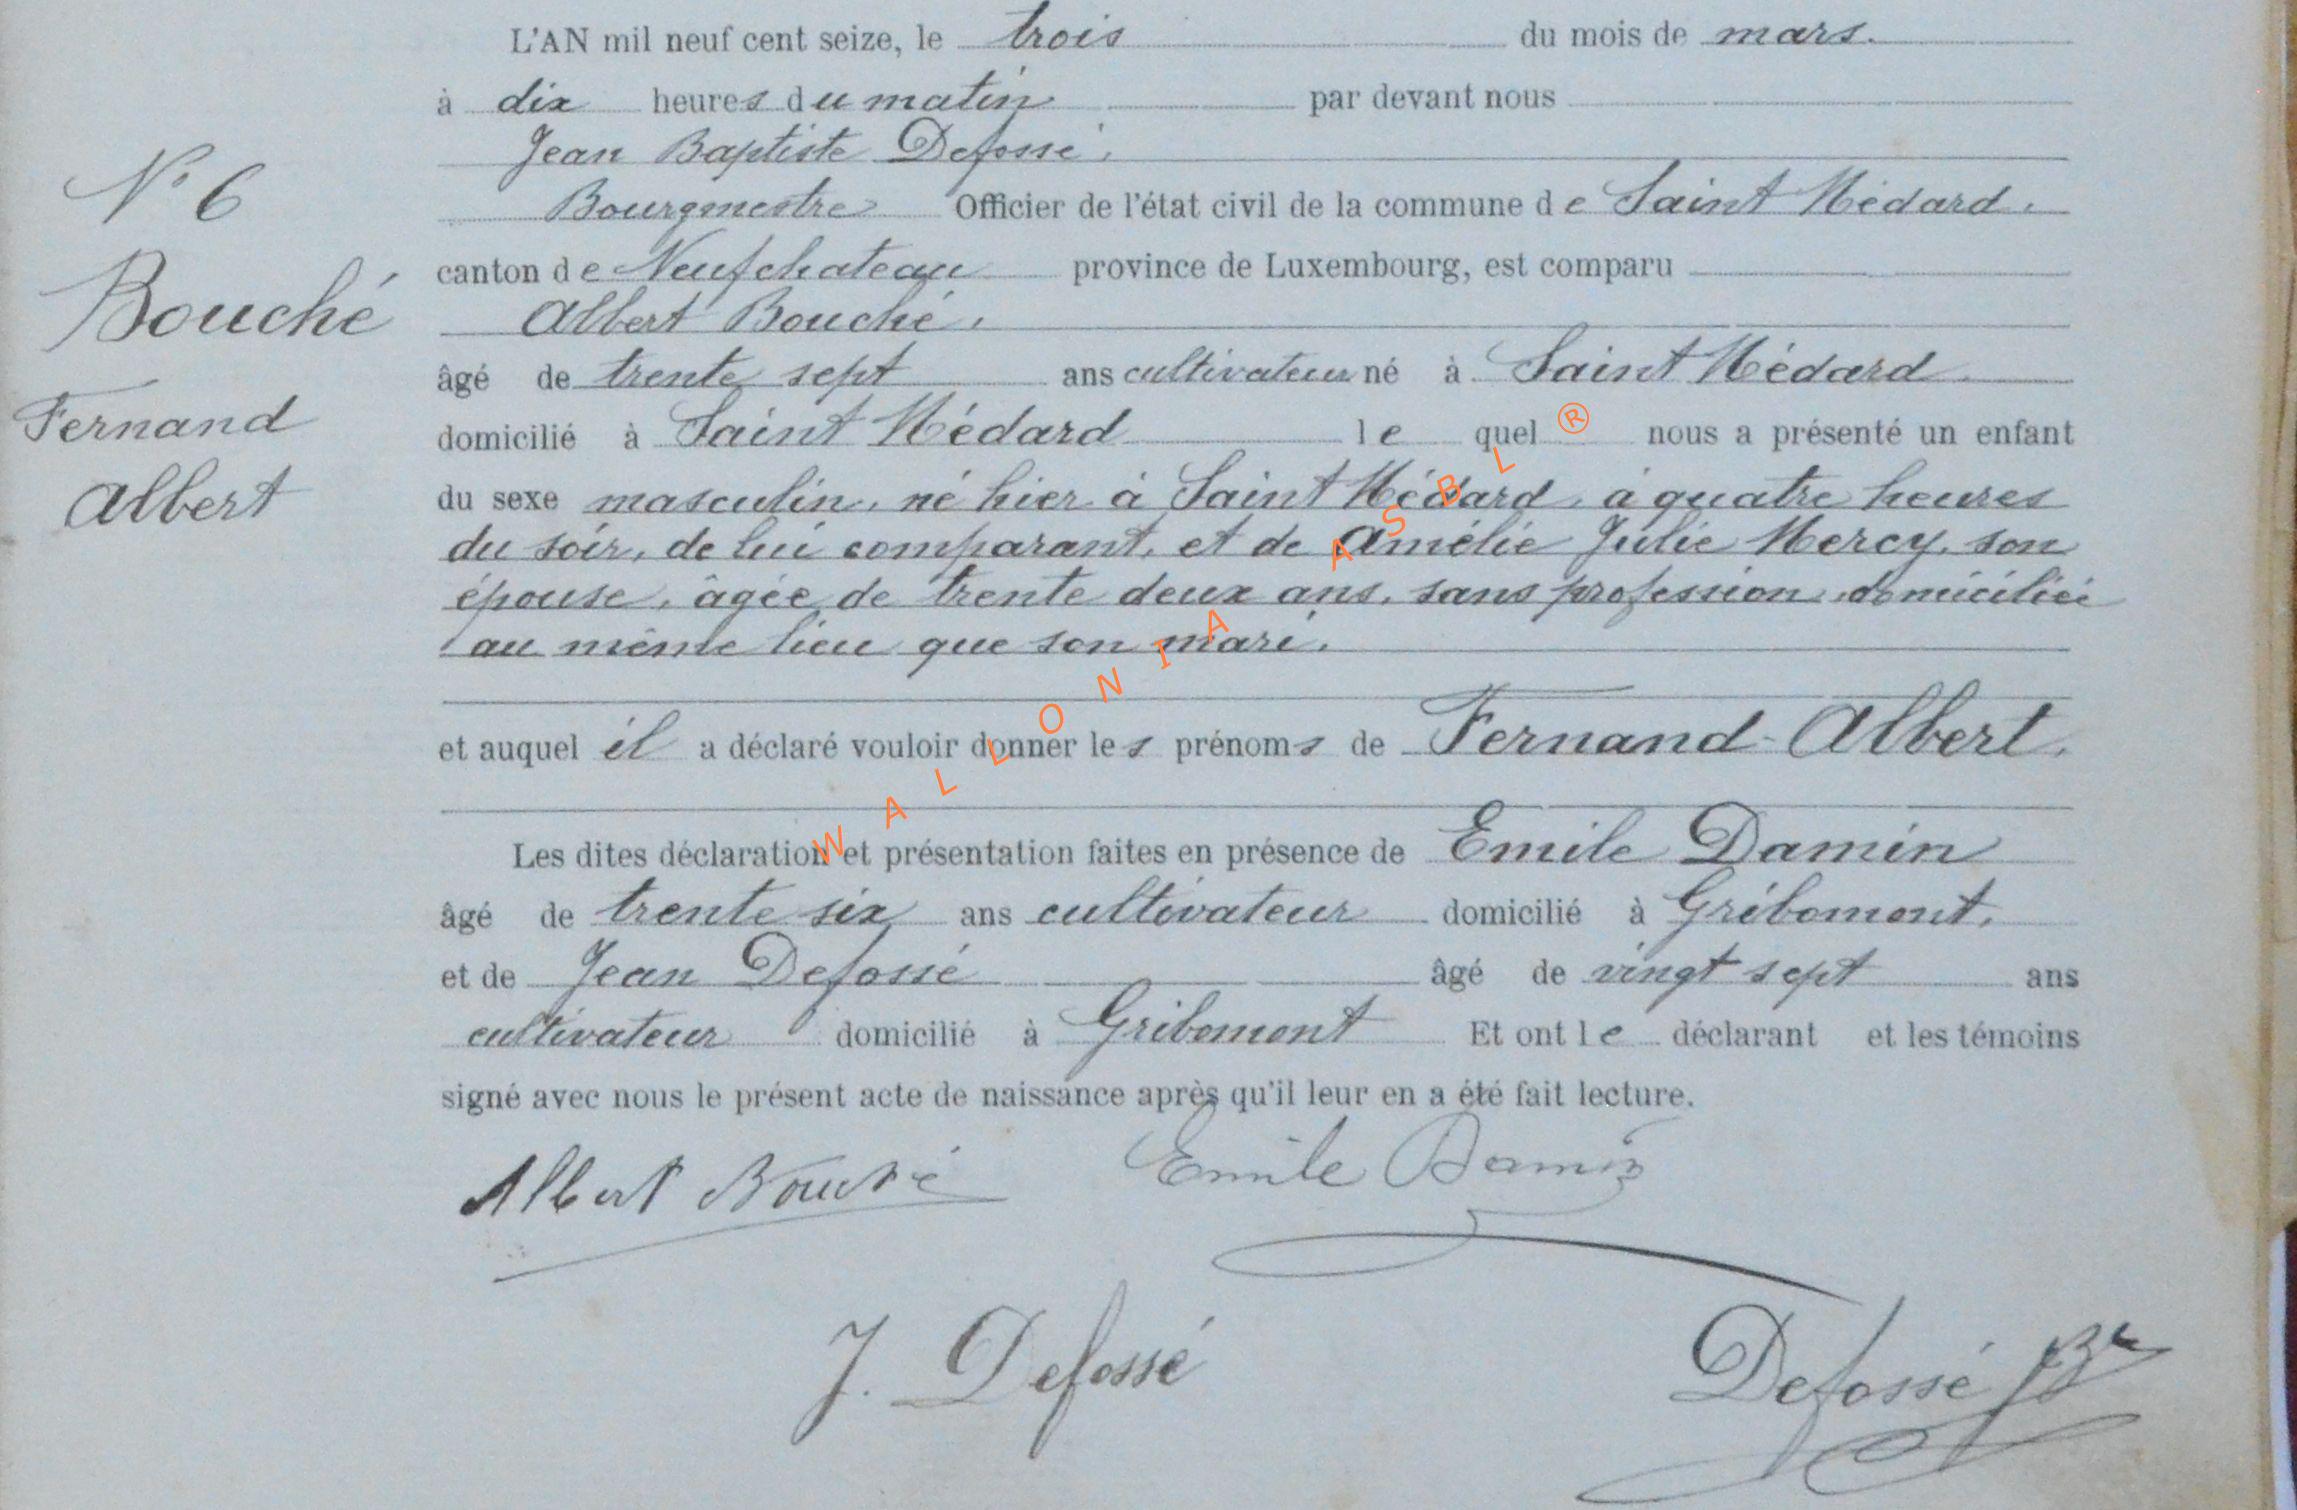 L'AN mil neuf cent seize, le trois du mois de mars.
à dix heures du matin par devant nous
Jean Baptiste Defossé,
Bourgmestre Officier de l'état civil de la commune de Saint Médard,
canton de Neufchateau province de Luxembourg, est comparu
Albert Bouché,
âgé de trente sept ans cultivateur né à Saint Médard
domicilié à Saint Médard le quel nous a présenté un enfant
du sexe masculin, né hier à Saint Médard, à quatre heures
du soir, de lui comparant, et de Amélie Julie Mercy, son
épouse, âgée de trente deux ans, sans profession, domiciliée
au même lieu que son mari.
et auquel il a déclaré vouloir donner les prénoms de Fernand Albert.
Les dites déclaration et présentation faites en présence de Emile Damin
âgé de trente six ans cultivateur domicilié à Gribomont,
et de Jean Defossé âgé de vingt sept ans
cultivateur domicilié à Gribomont Et ont le déclarant et les témoins
signé avec nous le présent acte de naissance après qu'il leur en a été fait lecture.
N° 6
Bouché
Fernand
Albert
Albert Bouché
Emile Damin
J. Defossé
Defossé JB
WALLONIA ASBL ®